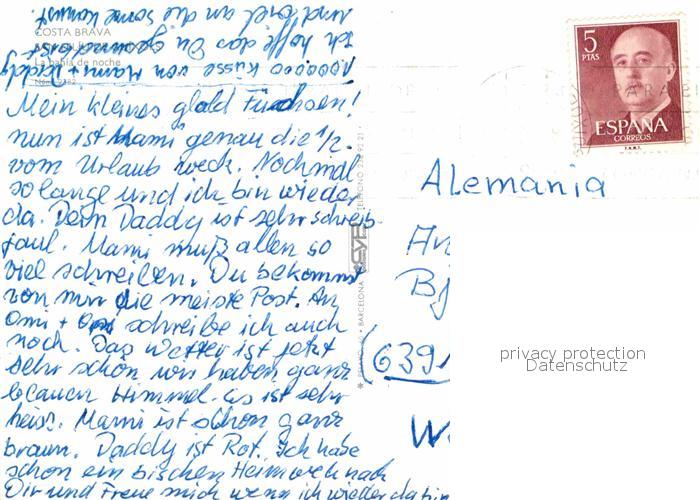 COSTA BRAVA
La bahía de noche
Mein kleines gold Füchsen!
nun ist Mami genau die 1/2.
vom Urlaub weck. Nochmal
so lange und ich bin wieder
da. Dein Daddy ist sehr schreib-
faul. Mami muß allen so
viel schreiben. Du bekommst
von mir die meiste Post. An
Omi + Opi schreibe ich auch
noch. Das Wetter ist jetzt
sehr schön wir haben ganz
blauen Himmel. es ist sehr
heiss. Mami ist schon ganz
braun. Daddy ist Rot. Ich habe
schon ein bischen Heimweh nach
Dir und Freue mich wenn ich wieder da bin
und
an die Sonne kommst.
Ich hoffe das Du
1000000 Küsse von Mami + Daddy
BARCELONA
5
PTAS
ESPAÑA
CORREOS
F.N.M.T.
Alemania
An
Bj
(639
W
privacy protection
Datenschutz